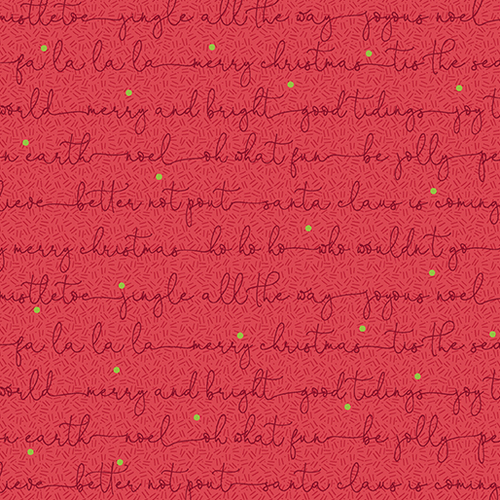 mistletoe jingle all the way joyous noel
fa la la la merry christmas tis the sea
world merry and bright good tidings joy t
n earth noel oh what fun be jolly pe
ieve better not pout santa claus is coming
merry christmas ho ho ho who wouldn't go
mistletoe jingle all the way joyous noel
fa la la la merry christmas tis the sea
world merry and bright good tidings joy t
n earth noel oh what fun be jolly pe
ieve better not pout santa claus is coming